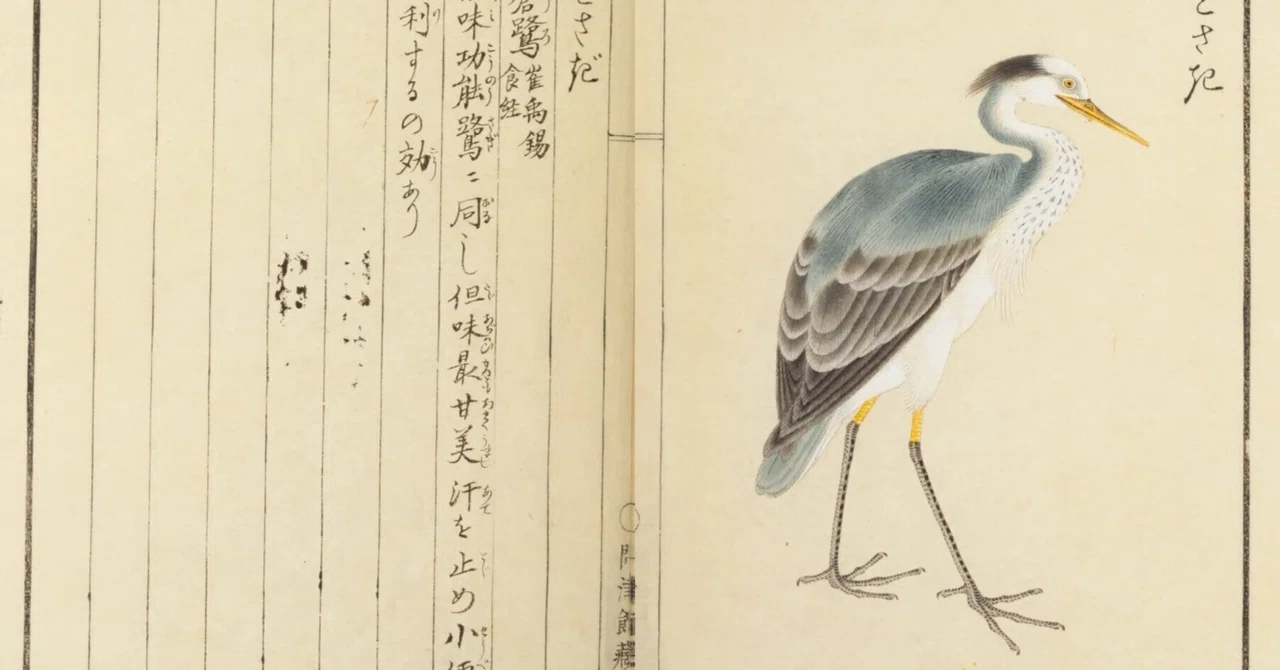 とさき
問津館藏
とさぎ
蒼鷺 崔禹錫食経
味功能鷺ニ同し但味最甘美汗を止め小便
利するの効あり